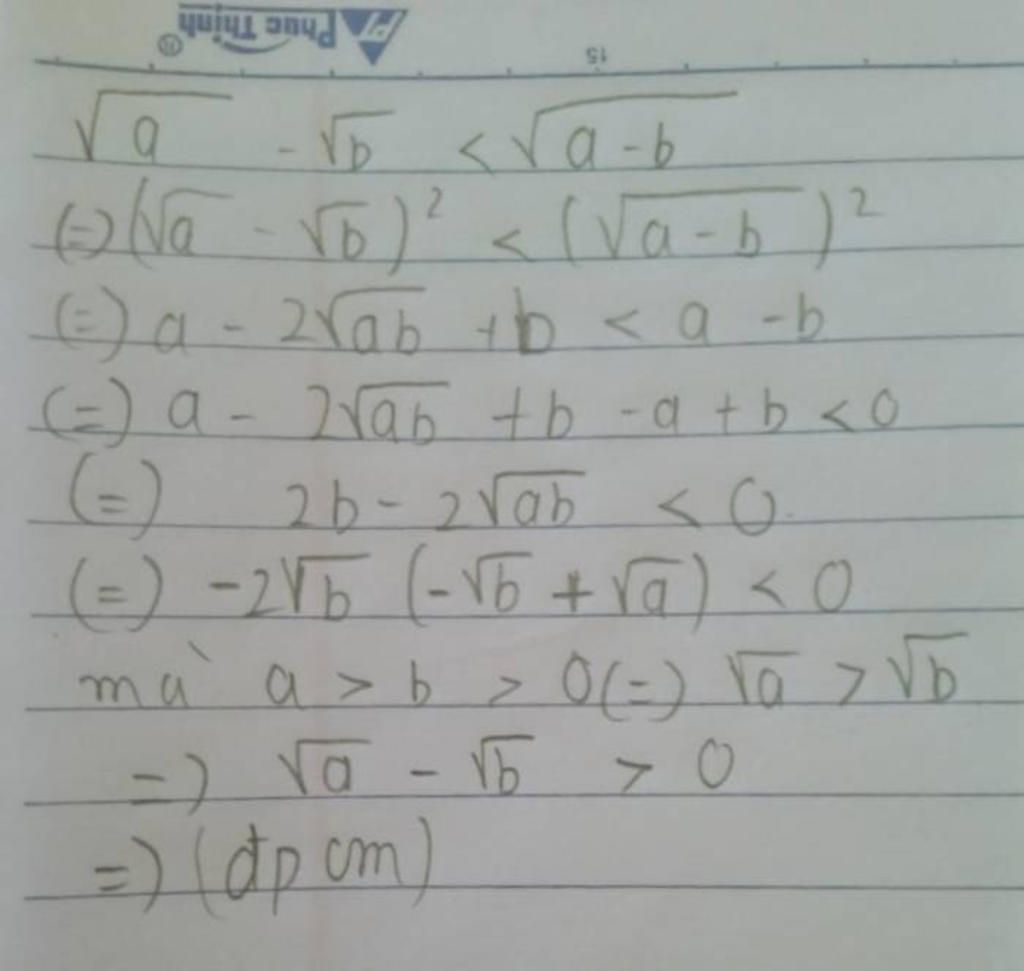 Phuc Thinh ®
15
√a - √b < √(a-b)
(=) (√a - √b)² < (√(a-b))²
(=) a - 2√(ab) + b < a - b
(=) a - 2√(ab) + b - a + b < 0
(=) 2b - 2√(ab) < 0.
(=) -2√b (-√b + √a) < 0
mà a > b > 0 (=) √a > √b
=) √a - √b > 0
=) (đpcm)